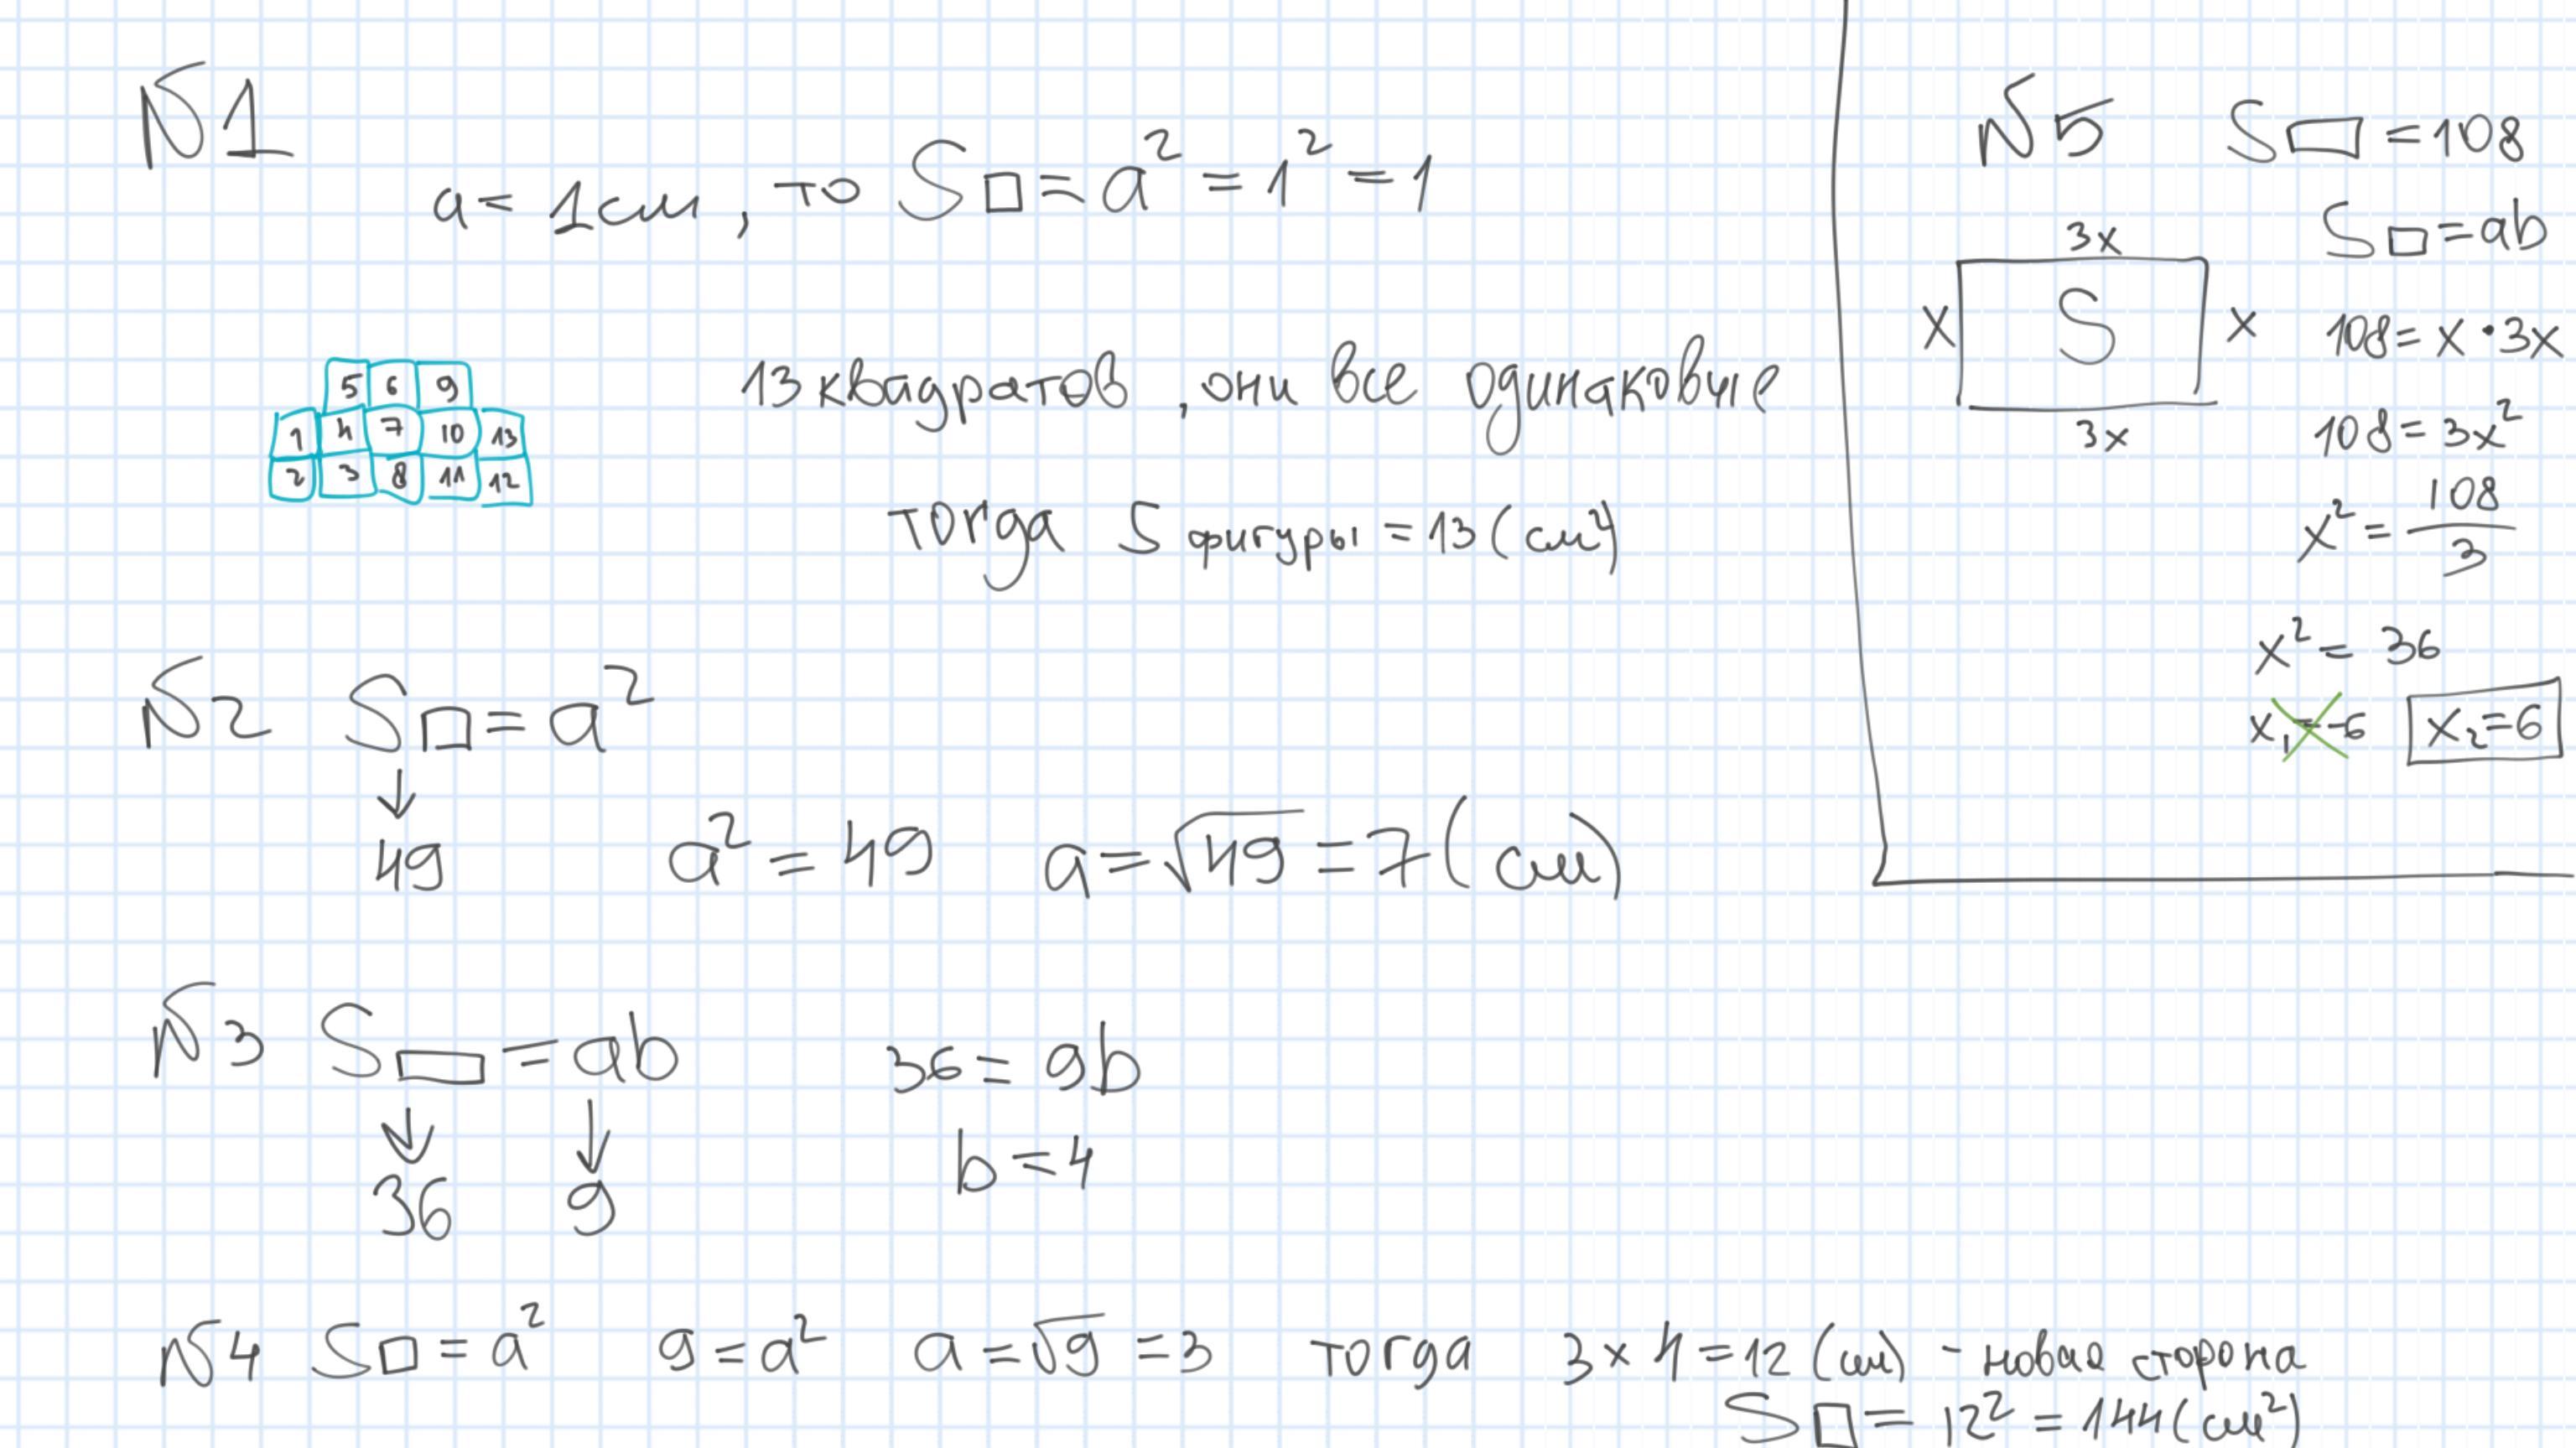 №1
a = 1см, то S□ = a² = 1² = 1
5 6 9
1 4 7 10 13
2 3 8 11 12
13 квадратов, они все одинаковые
тогда S фигуры = 13 (см²)
№2 S□ = a²
↓
49 a² = 49 a = √49 = 7 (см)
№3 S▭ = ab 36 = 9b
↓ ↓
b = 4
36 9
№4 S□ = a² 9 = a² a = √9 = 3 тогда 3 × 4 = 12 (см) - новая сторона
S□ = 12² = 144 (см²)
№5 S▭ = 108
S▭ = ab
3x
x S x
3x
108 = x · 3x
108 = 3x²
x² = 108/3
x² = 36
x₁ = -6 x₂ = 6